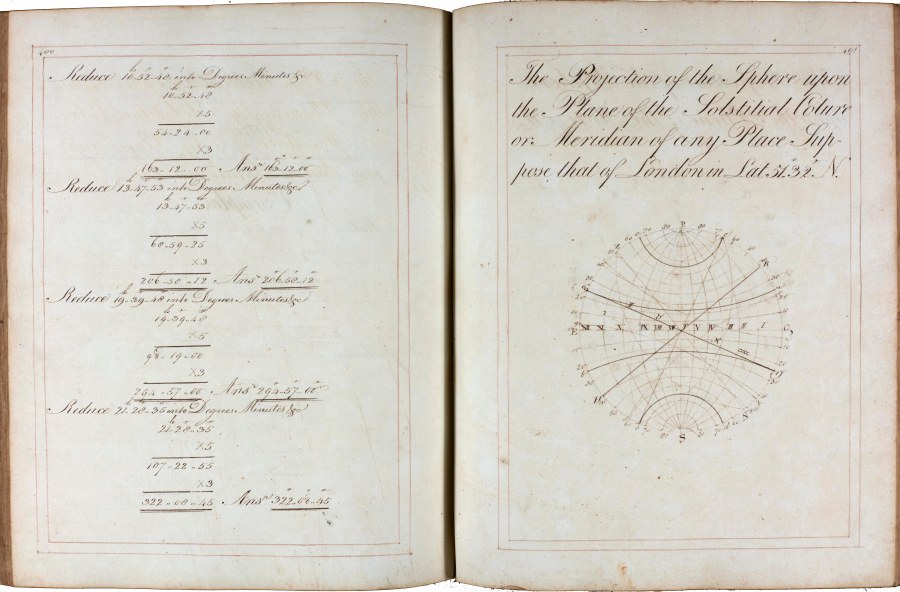 400
Reduce 10-52-48 into Degrees Minutes &c
10-52-48
X5
54-24-00
X3
163-12-00 Ansr 163-12-00
Reduce 13-47-53 into Degrees Minutes &c
13-47-53
X5
68-59-25
X3
206-58-12 Ansr 206-58-12
Reduce 19-39-48 into Degrees Minutes &c
19-39-48
X5
98-19-00
X3
294-57-00 Ansr 294-57-00
Reduce 21-28-35 into Degrees Minutes &c
21-28-35
X5
107-22-55
X3
322-08-45 Ansr 322-08-45
401
The Projection of the Sphere upon
the Plane of the Solstitial Colure
or Meridian of any Place Sup-
pose that of London in Lat 51°32' N.
P
R
E
H
S